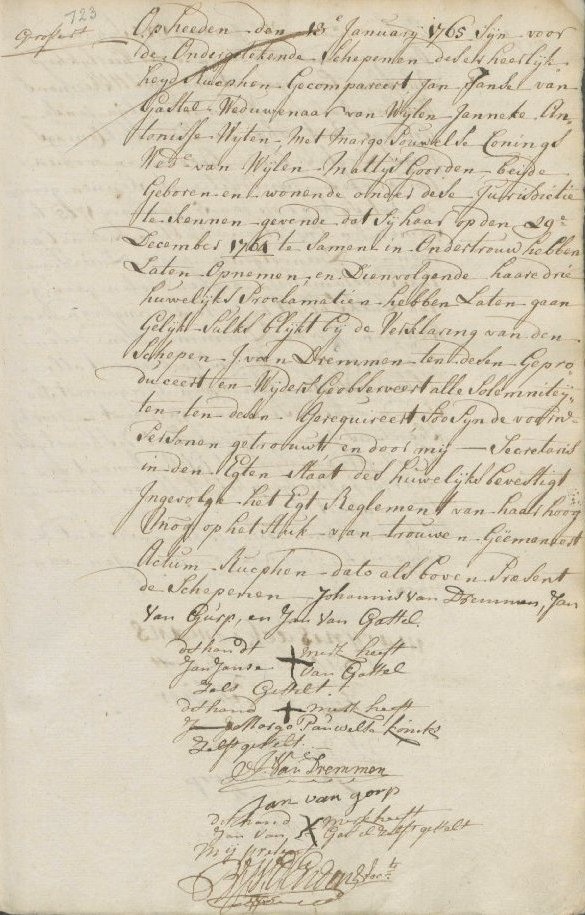 723
Grossert
Op heeden den 13e January 1765 Sijn voor
de Ondergetekende Schepenen deser heerlijk
heyd Rucphen Gecompareert Jan Janse van
Gastel Weduwenaar van Wijlen Janneke An
tonisse Wijten Met Margo Pouwelse Conings
Wede van Wijlen Mattijs Goorden beijde
Geboren en wonende onder dese Jurisdictie
te kennen gevende dat Sij haar op den 29e
December 1764 te Samen in Ondertrouw hebben
Laten Opnemen, en Dienvolgende haare drie
huwelijks Proclamatien hebben Laten gaan
Gelijk Sulks blijkt bij de Verklaring van den
Schepen J. van Dremmen ten desen Gepro
duceert en Wijders Geobserveert alle Solemniteij
ten ten desen Gerequireert, Soo Sijn de voorn
Persoonen getrouwt en door mij Secretaris
in den Egten Staat des huwelijks bevestigt
Ingevolge het Egt Reglement van haar hoog
Mog: op het Stuk van trouwen Geëmaneert
Actum Rucphen dato als boven Present
de Schepenen Johannis van Dremmen, Jan
Van Gurp, en Jan Van Gastel
dit handt + merk heeft
Jan Janse Van Gastel
Zels Gestelt.
dit hand + merk heeft
Margo Pauwelse Konicks
Zelfs gestelt
Van Dremmen
Jan van gorp
dit hand X merk heeft
Jan Van Gastel Zelfs gestelt
Mij present
Secrts